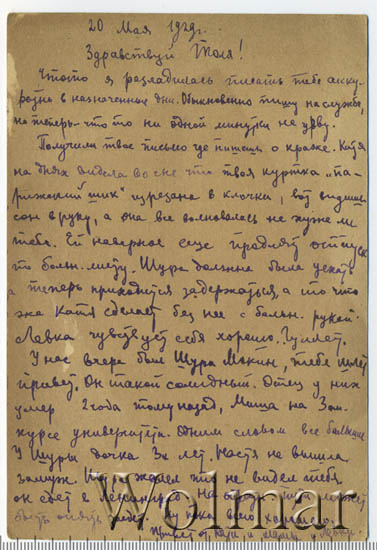 20 Мая 1929г.
Здравствуй Толя!
Что то я разладилась писать тебе акку-
ратно в назначенные дни. Обыкновенно пишу на службе,
но теперь что то ни одной минутки не урву.
Получили твое письмо где пишешь о краже. Катя
на днях видела во сне что твоя куртка "па-
рижский шик" изрезана в клочки, вот видишь
сон в руку, а она все волновалась не хуже ли
тебе. Ей наверное еще продлят отпуск
по больн. листу. Шура должна была уехать
а теперь приходится задержаться, а то что
же Катя сделает без нее с больн. рукой.
Левка чувствует себя хорошо. Гуляет.
У нас вчера был Шура Мокин, тебе шлет
привет. Он такой солидный. Отец у них
умер 2 года тому назад, Миша на 3ем
курсе университета. Одним словом все большие
У Шуры дочка 3х лет, Настя не вышла
замуж. жалел что не видел тебя
он едет в Ленинград на может
быть опять Ну пока всего хорошего.
Привет от Кати, и Левки.
Wolmar